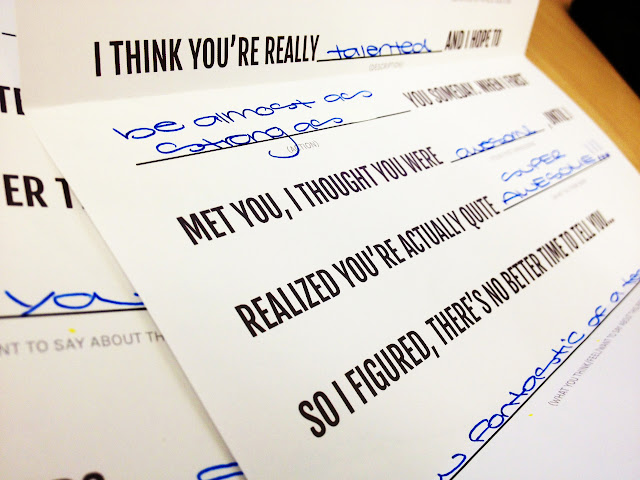 I THINK YOU'RE REALLY talented AND I HOPE TO
(DESCRIPTION)
be almost as
strong as YOU SOMEDAY. WHEN I FIRST
(ACTION)
MET YOU, I THOUGHT YOU WERE awesome, UNTIL I
REALIZED YOU'RE ACTUALLY QUITE SUPER
AWESOME!!!
SO I FIGURED, THERE'S NO BETTER TIME TO TELL YOU...
fantastic of a
(WHAT YOU THINK/FEEL/WANT TO SAY ABOUT
ER
you
NT TO SAY ABOUT